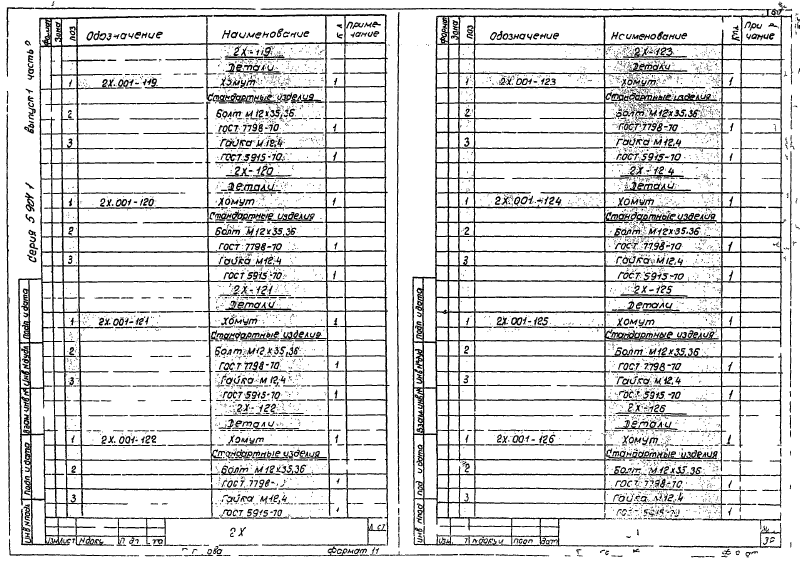 Серия 5.901-1 Выпуск 1 часть 0
Формат Зона Поз Обозначение Наименование Приме-
чание
2Х-119
Детали
1 2Х.001-119 Хомут 1
Стандартные изделия
2 Болт М12х35,36
ГОСТ 7798-70 1
3 Гайка М12,4
ГОСТ 5915-70 1
2Х-120
Детали
1 2Х.001-120 Хомут 1
Стандартные изделия
2 Болт М12х35,36
ГОСТ 7798-70 1
3 Гайка М12,4
ГОСТ 5915-70 1
2Х-121
Детали
1 2Х.001-121 Хомут 1
Стандартные изделия
2 Болт М12х35,36
ГОСТ 7798-70 1
3 Гайка М12,4
ГОСТ 5915-70 1
2Х-122
Детали
1 2Х.001-122 Хомут 1
Стандартные изделия
2 Болт М12х35,36
ГОСТ 7798- 1
3 Гайка М12,4
ГОСТ 5915-70 1
2Х
Формат 11
Формат Зона Поз Обозначение Наименование Кол При
чание
2Х-123
Детали
1 2Х.001-123 Хомут 1
Стандартные изделия
2 Болт М12х35,36
ГОСТ 7798-70 1
3 Гайка М12,4
ГОСТ 5915-70 1
2Х-12.4
Детали
1 2Х.001-124 Хомут 1
Стандартные изделия
2 Болт М12х35,36
ГОСТ 7798-70 1
3 Гайка М12,4
ГОСТ 5915-70 1
2Х-125
Детали
1 2Х.001-125 Хомут 1
Стандартные изделия
2 Болт М12х35,36
ГОСТ 7798-70 1
3 Гайка М12,4
ГОСТ 5915-70 1
2Х-126
Детали
1 2Х.001-126 Хомут 1
Стандартные изделия
2 Болт М12х35,36
ГОСТ 7798-70 1
3 Гайка М12,4
ГОСТ 5915-70 1